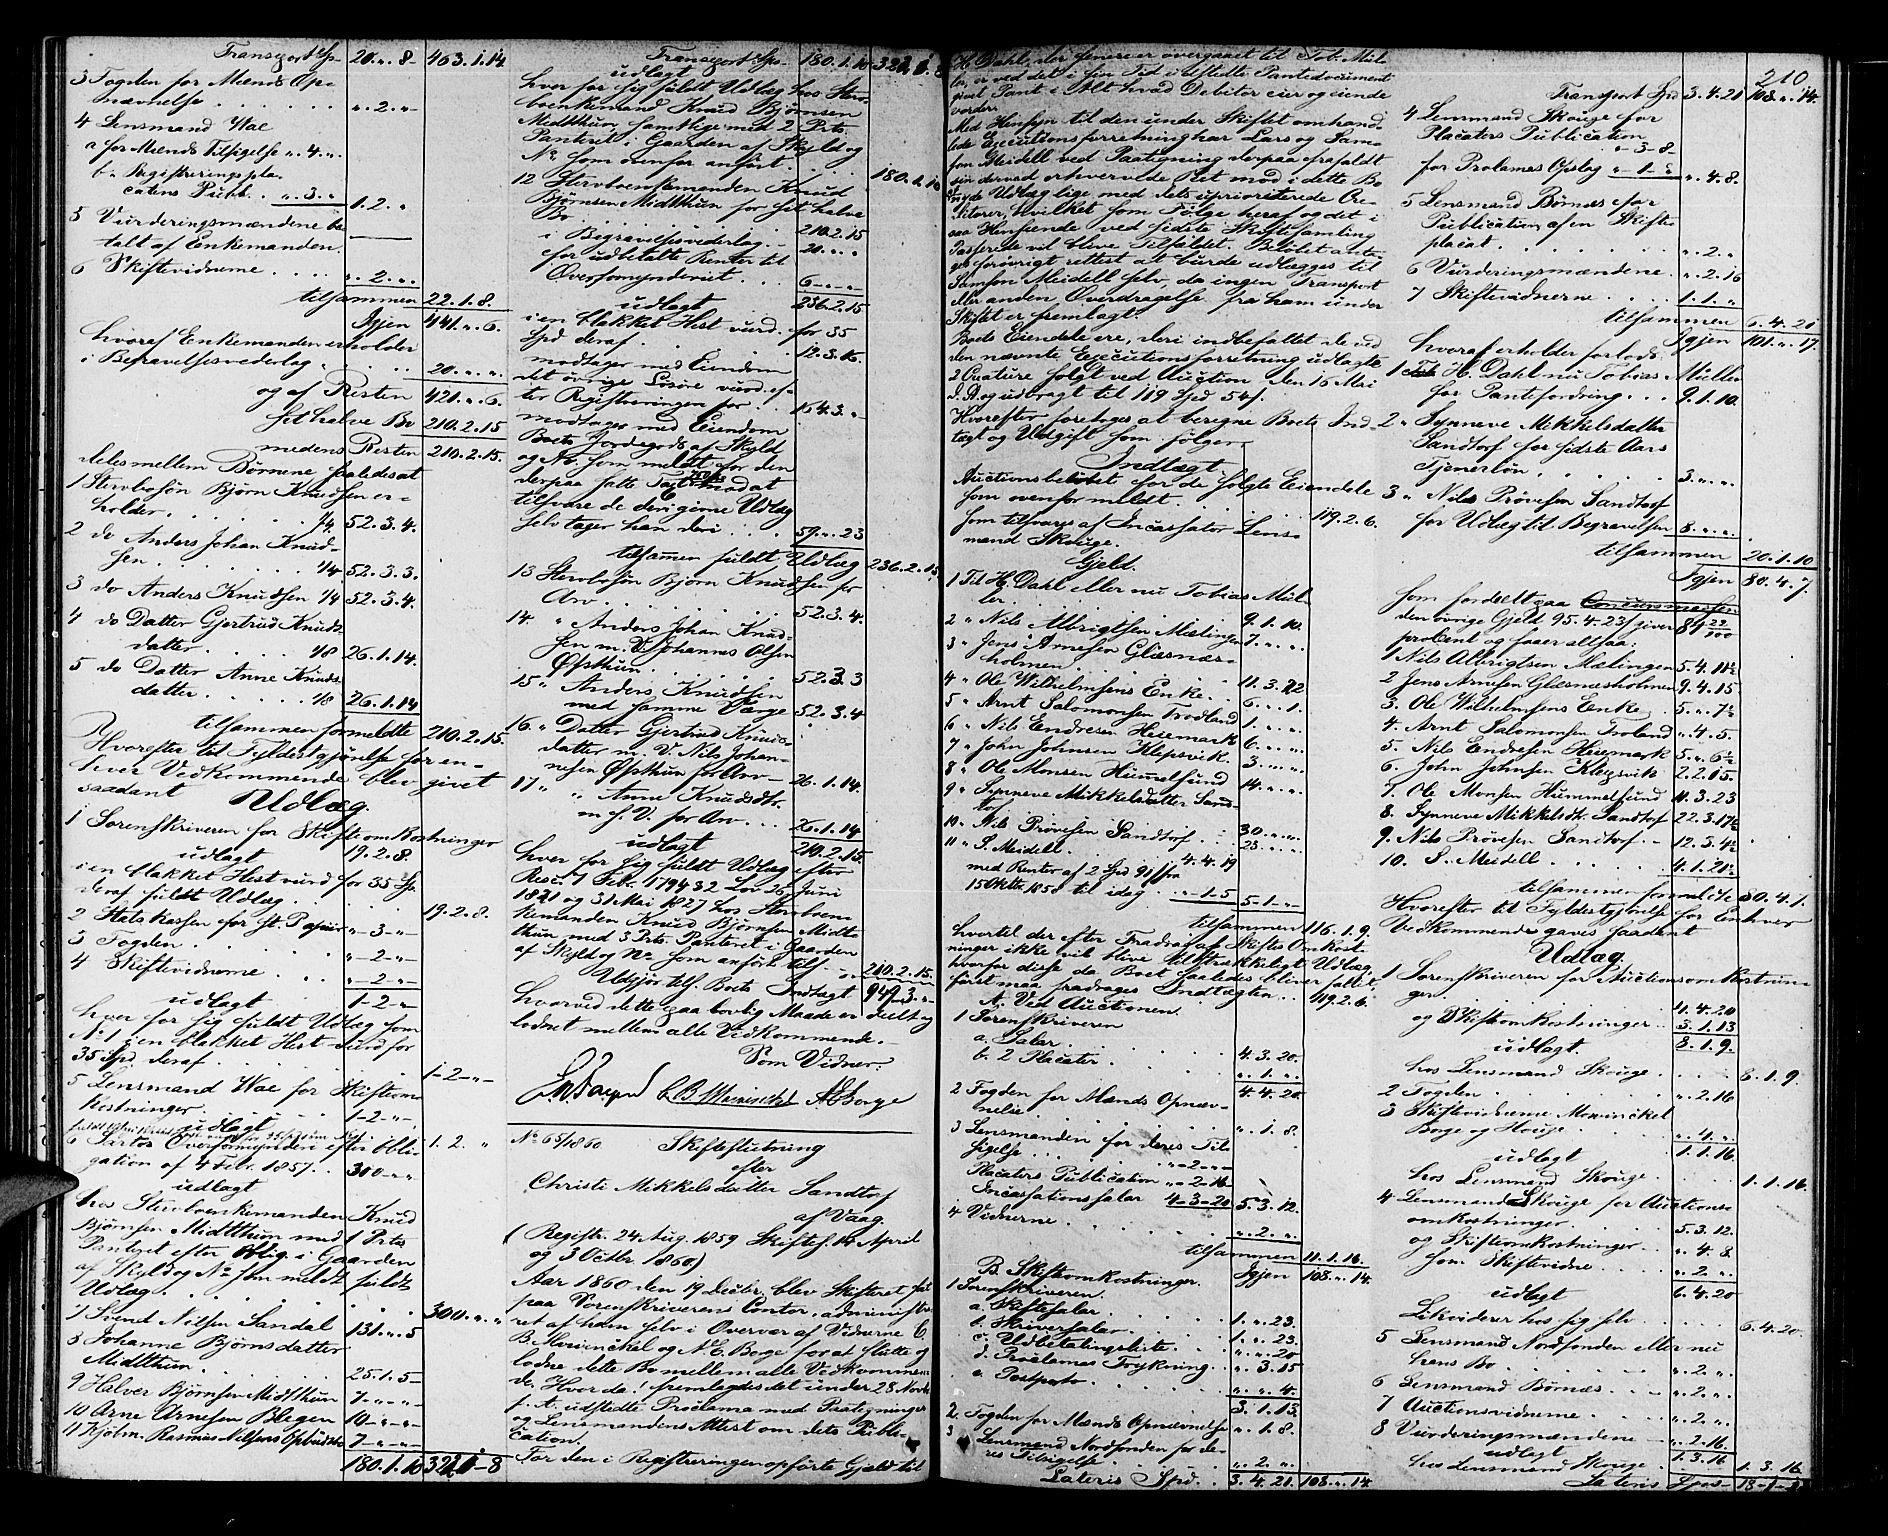 Transport Sp 20. „ 8 463.1.14.
3 Fogden for Mænds Op-
nævnelse . . . „ 2. „
4 Lensmand Wae
a for Mænds Tilsigelse „ 4. „
b. Registreringspla-
catens Publ. . „ 3. „ 1. 2. „
5 Vurderingsmændene be-
talt af Enkemanden
6 Skiftevidnerne . . . . „ 2. „
tilsammen 22. 1. 8.
Igjen 441. „ 6.
hvoraf Enkemanden erholder
i Begravelsesvederlag . . . 20. „ „
og af Resten 421. „ 6.
sit halve Bo 210. 2. 15
medens Resten 210. 2. 15.
deles mellem Børnene saaledes at
1 Stervbosøn Bjørn Knudsen er-
holder . . . . 1/4 52. 3. 4.
2 do Anders Johan Knud-
sen . . . . 1/4 52. 3. 3.
3 do Anders Knudsen 1/4 52. 3. 4.
4 do Datter Gjertrud Knuds-
datter . . . . 1/8 26. 1. 14.
5 do Datter Anne Knuds-
datter . . . . 1/8 26. 1. 14
tilsammen formeldte 210. 2. 15.
Hvorefter til Fyldestgjørelse for en-
hver Vedkommende blev givet
saadant Udlæg.
1 Sorenskriveren for Skifteomkostninger
udlagt 19. 2. 8.
i en blakket Hest vurd. for 35 Sp.
deraf fuldt Udlæg . . . 19. 2. 8.
2 Statskassen for St. Papiir „ 3 „
3 Fogden . . . „ 2 „
4 Skiftevidnerne . . „ 2 „
udlagt 1 - 2 - „
hver for sig fuldt Udlæg som
No 1 i en blakket Hest vurd for
35 Spd. deraf . . . 1 - 2 - „
5 Lensmand Wae for Skifteom-
kostninger . . . 1 - 2 - „
udlagt
1. 2. „
6 Overformynderi efter Obli-
gation af 4 Febr. 1857. . 300 „ „
udlagt
hos Stervboenkemanden Knud
Bjørnsen Midtthun med 1 Prts
Panteret efter Oblig. i Gaarden
af Skyld og No som meldt fuldt
Udlæg . . . . 300. „ „
7 Svend Nilsen Sandal 131. „ 5
8 Johanne Bjørnsdatter
Midtthun . . . 25. 1. 5 -
9 Halver Bjørnsen Midtthun 7 „ „
10 Arne Arnesen Blegen . 10 „ „
11 Kjøbm. Rasmus Nilsens Opbudsbo 7 „ „
180. 1. 10 321. „ 8

Transport Sp. 180. 1. 10 321. „ 8
udlagt
hver for sig fuldt Udlæg hos Sterv-
boenkemand Knud Bjørnsen
Midtthun samtlige med 2 Prts
Panteret i Gaarden af Skyld og
No som ovenfor anført. . . 180. 1. 10
12 Stervboenkemanden Knud
Bjørnsen Midtthun for sit halve
Bo . . . . 210. 2. 15
i Begravelsesvederlag . . 20. „ „
for udbetalte Renter til
Overformynderiet . . . 6 „ „
236. 2. 15
udlagt
i en blakket Hest vurd. for 35
Spd deraf . . . . 12. 3. 16.
modtager med Eiendom
det øvrige Løsøre vurd. ef-
ter Registreringen for . . 164. 3. „
modtages med Eiendom
Boets Jordegods af Skyld
og No. som meldt for den
derpaa satte Taxt mod at
tilsvare de deri gjorte Udlæg
selv tager han deri . . . 59. „ 23
tilsamen fuldt Udlæg 236. 2. 15.
13 Stervbosøn Bjørn Knudsen for
Arv . . . . . 52. 3. 4.
14 „ Anders Johan Knud-
sen m. V. Johannes Olsen
Øfsthun . . . . 52. 3. 3
15 „ Anders Knudsen
med samme Værge 52. 3. 4
16 „ Datter Gjertrud Knuds-
datter m. V. Nils Johan-
nesen Øfsthun for Arv — 26. 1. 14.
17 „ „ Anne Knudsdtr.
m. s. V. for Arv . . . 26. 1. 14
udlagt 210. 2. 15.
hver for sig fuldt Udlæg efter
Rescr. 7 Febr. 1794 § 2 Lov 26 Juni
1821 og 31 Mai 1827 hos Stervboen-
kemanden Knud Bjørnsen Midt-
thun med 3 Prts. Panteret i Gaarden
af Skyld og No som anført til „ 210. 2. 15.
Udgjør tils. Boets Indtægt 949. 3. „
hvorved dette paa lovlig Maade er deelt og
lodnet mellem alle Vedkommende. —
Som Vidner.
C. B. Mowinckel A E Borge

No 65/1860 Skifteslutning
efter
Christi Mikkelsdatter Sandtorf
af Vaag.
(Registr. 24 Aug. 1859 Skiftes. 14 April
og 3 Octbr. 1860)
Aar 1860 den 19 Decbr. blev Skifteret sat
paa Sorenskriverens Contor, administre-
ret af ham selv i Overvær af Vidnerne C.
B. Mowinckel og A. E. Borge for at slutte og
lodne dette Bo mellem alle Vedkommen-
de. Hvor da: fremlagdes det under 28 Novbr
f. A. udstedte Proclama med Paategninger
og Lensmandens Attest om dets Publi-
cation.
For den i Registreringen opførte Gjeld til

H. Dahl, der senere er overgaaet til Tob. Mül-
ler, er ved det i sin Tid udstedte Pantedocument
givet Pant i Alt hvad Debitor eier og eiende
vorder.
Med Hensyn til den under Skiftet omhand-
lede Executionsforretning har Lars og Sam-
son Meidell ved Paategning derpaa frafaldt
sin derved erhvervede Ret mod i dette Bo
at nyde Udlæg lige med dets uprioriterede Cre-
ditorer, hvilket som Følge heraf og det i
saa Henseende ved sidste Skiftesamling
Passerede vil blive Tilfældet. Beløbet anta-
ges forøvrigt rettest at burde udlægges til
Samson Meidell selv, da ingen Transport
eller anden Overdragelse fra ham under
Skiftet er fremlagt.
Boets Eiendele ere, deri indbefattet de ved
den nævnte Executionsforretning udlagte
2 Creature solgt ved Auction den 16 Mai
d. A. og udbragt til 119 Spd 54 s.
Hvorefter foretoges at beregne Boets Ind-
tægt og Udgift som følger
Indtægt.
Auctionsbeløbet for de solgte Eiendele
som ovenfor meldt . . . . 119. 2. 6.
som tilsvares af Incassator Lens-
mand Skouge.
Gjeld.
1 Til H. Dahl eller nu Tobias Mül-
ler . . . . 9. 1. 10.
2 „ Nils Albrigtsen Mælingen 7. „ „
3 „ Jens Arnesen Glæsnæs-
holmen . . . 11. 3. 22
4 „ Ole Wilhelmsens Enke . 6. „ 1.
5 „ Arnt Salomonsen Trodland 1. „ „
6 „ Nils Endresen Huemark 6. „ „
7 „ John Johnsen Klepsvik . 3. „ „
8 „ Ole Monsen Hummelsund 14. „ „
9 „ Synneve Mikkelsdatter Sand-
torf . . . . 30. „ „
10 „ Nils Prøvesen Sandtorf . 23. „ „
11 „ S. Meidell . . 4. 4. 19
med Renter af 2 Spd 91 s fra
15 Oktbr 1858 til idag . „ 1 - 5 5 - 1 - „
tilsammen 116. 1. 9.
hvortil der efter Fradrag af Skifteomkost-
ninger ikke vil blive tilstrækkeligt Udlæg
hvorfor disse da Boet saaledes bliver fallit
først maa fradrages Indtægten . . 119. 2. 6.
A. Ved Auctionen
1 Sorenskriveren
a. Salær . . . . 4. 3. 20.
b. 2 Placater . . . „ 1. „
4. 4. 20.
2 Fogden for Mænds Opnæv-
nelse . . . . „ 1. 8.
3 Lensmanden for deres Til-
sigelse . . . „ 2 „
Placaters Publication „ 2 - 16
Incassationssalær 4 - 3 - 20 5. 3. 12.
4 Vidnerne . . . . „ 2. „
tilsammen 11. 1. 16.
Igjen 108. „ 14.
B. Skifteomkostninger
1 Sorenskriveren
a. Skiftesalær . . . 1. „ 23.
b. Skriversalær . . . 1. „ 23.
c. Udbetalingsliste . . „ „ 20
d. Proclamas Trykning . . „ 3. 15
e. Postporto . . . . „ „ 4.
3. 1. 13.
2. Fogden for Mænds Opnævnelse „ 1. 8.
3 Lensmand Nordfonden for de-
res Tilsigelse . . . „ 2. „
Lateris Spd. . 3. 4. 21. 108. „ 14

210
Transport Spd 3. 4. 21 108. „ 14.
4 Lensmand Skouge for
Placaters Publication
„ 3 - 8 -
for Prolamas Opslag „ 1 „ „ 4. 8.
5 Lensmand Børnæs for
Publication af en Skifte-
placat . . . . „ 2. „
6 Vurderingsmændene . „ 2. 16
7 Skiftevidnerne . . . 1. 1. „
tilsammen 6. 4. 21
Igjen 101. „ 17.
hvoraf erholder forlods:
1 H. Dahl nu Tobias Müller
for Pantefordring . . . 9. 1. 10.
2 „ Synneve Mikkelsdatter
Sandtorf for sidste Aars
Tjenerløn . . . . 3. „ „
3 „ Nils Prøvesen Sandtorf
for Udlæg til Begravelsen 8. „ „
tilsammen 20. 1. 10
Igjen 80. 4. 7.
som fordeelt paa Concursmassen
den øvrige Gjeld 95. 4. 23 s giver 84 29/100
procent og faaer altsaa:
1 Nils Albrigtsen Mælingen 5. 4. 11½
2 Jens Arnesen Glæsnæsholmen 9. 4. 15.
3. Ole Wilhelmsens Enke . 5. „ 7½
4. Arnt Salomonsen Troland „ 4. 5.
5. Nils Endresen Huemark 5. „ 6½
6. John Johnsen Klepsvik . 2. 2. 15.
7. Ole Monsen Hummelsund 11. 3. 23
8. Synneve Mikkelsdtr. Sandtorf 22. 3. 17½
9. Nils Prøvesen Sandtorf . - 12. 3. 4½
10. S. Meidell . . . . 4. 1. 21½
tilsammen formeldte 80. 4. 7.
Hvorefter til Fyldestgjørelse for Enhver
Vedkommende gaves saadant
Udlæg.
1 Sorenskriveren for Auctionsomkostnin-
ger . . . . . 4. 4. 20
og Skifteomkostninger . 3. 1. 13
udlagt. 8. 1. 9.
hos Lensmand Skouge . . . 8. 1. 9.
2 Fogden . . . . „ 2. 16
3 Skiftevidnerne Mowinckel
Borge og Houge . . . „ 4. „
udlagt 1. 1. 16.
hos Lensmand Skouge . . . 1. 1. 16.
4 Lensmand Skouge for Auctions-
omkostninger . . . 5. 3. 12.
og Skifteomkostninger . . „ 4. 8.
som Skiftevidne . . . „ 2. „
udlagt 6. 4. 20
Likviderer hos sig selv . . . 6. 4. 20.
5 Lensmand Nordfonden eller nu
hans Bo . . . . „ 2. „
6 Lensmand Børnæs . . . „ 2. „
7 Auctionsvidnerne . . . „ 2. „
8 Vurderingsmændene . . „ 2. 16.
udlagt 1. 3. 16
hos Lensmand Skouge . . . 1. 3. 16
Lateris Spd